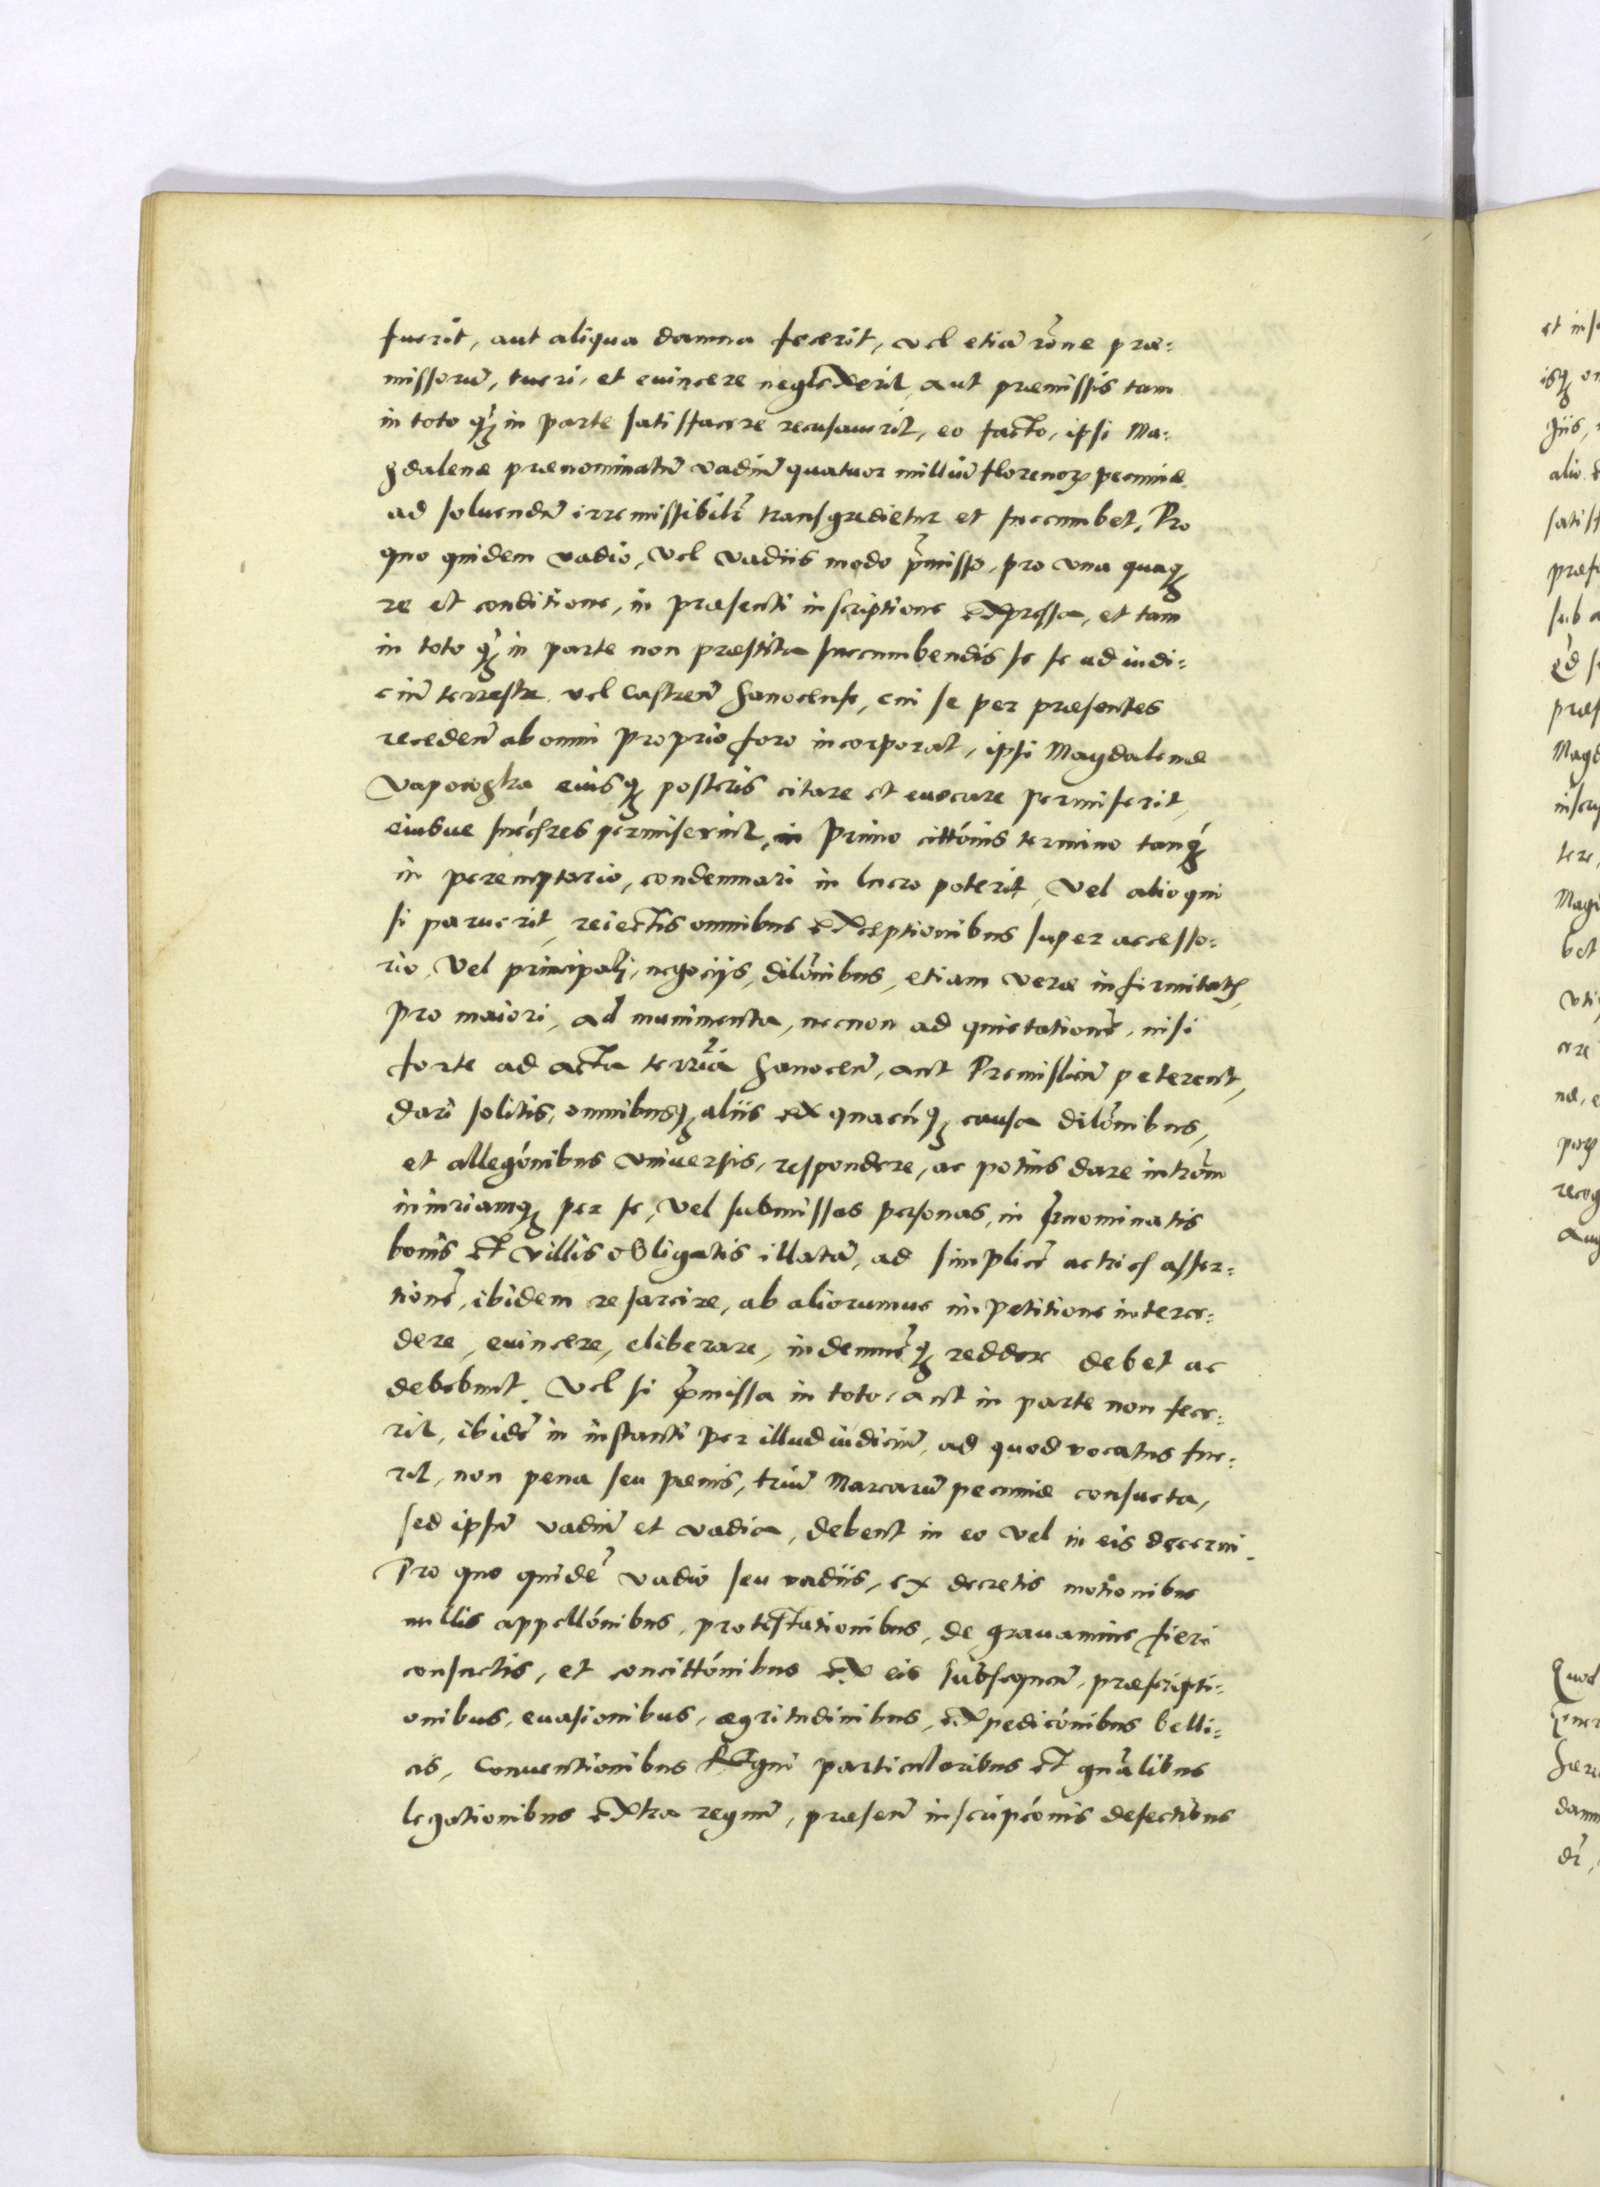 fuerit, aut aliqua damna fecerit, vel etiã rõne præ:
missorũ, tueri, et euincere neglexerit, aut præmissis tam
in toto q̃ in parte satisfacere recusauerit, eo facto, ipsi Ma:
gdalenæ prænominatũ vadiũ quatuor milliũ florenoꝝ pecuniæ
ad soluendũ irremissibilr̃ transgredietur et succumbet, Pro
quo quidem vadio, vel vadiis modo p̃misso, pro vna quaqꝫ
re et conditione, in præsenti inscriptione expressa, et tam
in toto q̃ in parte non præstita succumbendis se se ad iudi:
ciũ terrestre vel Castreñ Sanocense, cui se per præsentes
recedeñ ab omni proprio foro incorporat, ipsi Magdalenæ
eiusqꝫ posteris citare et euocare permiserit,
eiusue succ̃res permiserint, in primo cittõnis termino tanq̃
in peremptorio, condemnari in lucro poterit, Vel alioqui
si paruerit, reiectis omnibus exceptionibus super accesso:
rio, Vel principali, negociis, dilõnibus, etiam veræ infirmitatis,
pro maiori, ad munimenta, necnon ad quietationẽ, nisi
forte ad acta terrĩa Sanoceñ, aut Premislieñ peterent,
dari solitis, omnibusqꝫ aliis ex quacũqꝫ causa dilõnibus,
et allegõnibus vniuersis, respondere, ac potius dare introm̃
iniuriamqꝫ per se, Vel submissas personas, in p̃nominatis
bonis et villis obligatis illatã, ad simplicẽ actricis asser:
tionẽ, ibidem resarcire, ab aliorumue impetitione interce:
dere, euincere, eliberare, indemnẽqꝫ reddere debet ac
debebunt. Vel si p̃missa in toto, aut in parte non fece:
rit, ibidẽ in instanti per illud iudiciũ, ad quod vocatus fue:
rit, non pena seu pænis, triũ Marcarũ pecuniæ consueta,
sed ipsũ vadiũ et vadia, debent in eo vel in eis decerni.
Pro quo quidẽ vadio seu vadiis, ex decretis motionibus
nullis appellõnibus, protestationibus, de grauamine fieri
consuetis, et concittõnibus ex eis subsequeñ, præscripti:
onibus, euasionibus, ægritudinibus, expedicõnibus belli:
cis, Conuentionibus Regni particularibus et gñalibus
legationibus extra regnũ, præseñ inscripcõnis defectibus